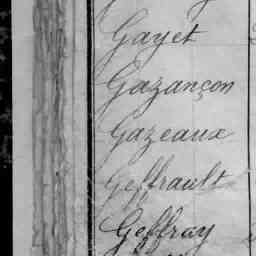 Gayet
Gazançon
Gazeaux
Geffrault
Geffray